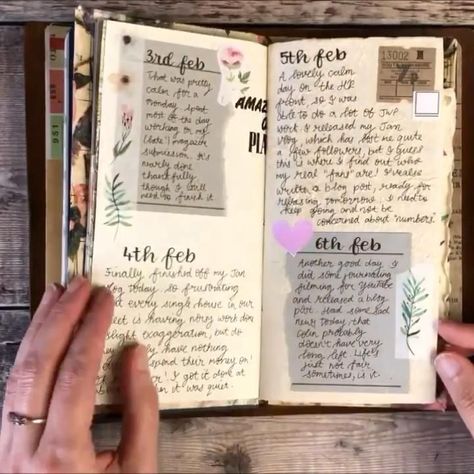 3rd feb
That was pretty
calm for a
monday spent
most of the day
working on my
(late!) magazine
submission. it's
nearly done
thankfully
though I still need
to finish it
AMAZ
PLA
4th feb
Finally, finished off my Jan
vlog today. so frustrating
that every single house in our
street is having noisy work done
slight exaggeration, but do
they have nothing
spend their money on!
I got it done at
it was quiet.
5th feb
A lovely calm
day on the HR
front, so I was
able to do a lot of JWP
work. I released my Jan
vlog, which has lost me quite
a few followers, but I guess
this is where I find out who
my real "fans" are! I also
wrote a blog post, ready for
releasing tomorrow. I need to
keep going and not be
concerned about "numbers"
13002
6th feb
Another good day. I
did some journaling
filming for YouTube
and released a blog
post. Had some sad
news today that
Colin probably
doesn't have very
long left. Life's
just not fair
sometimes, is it.